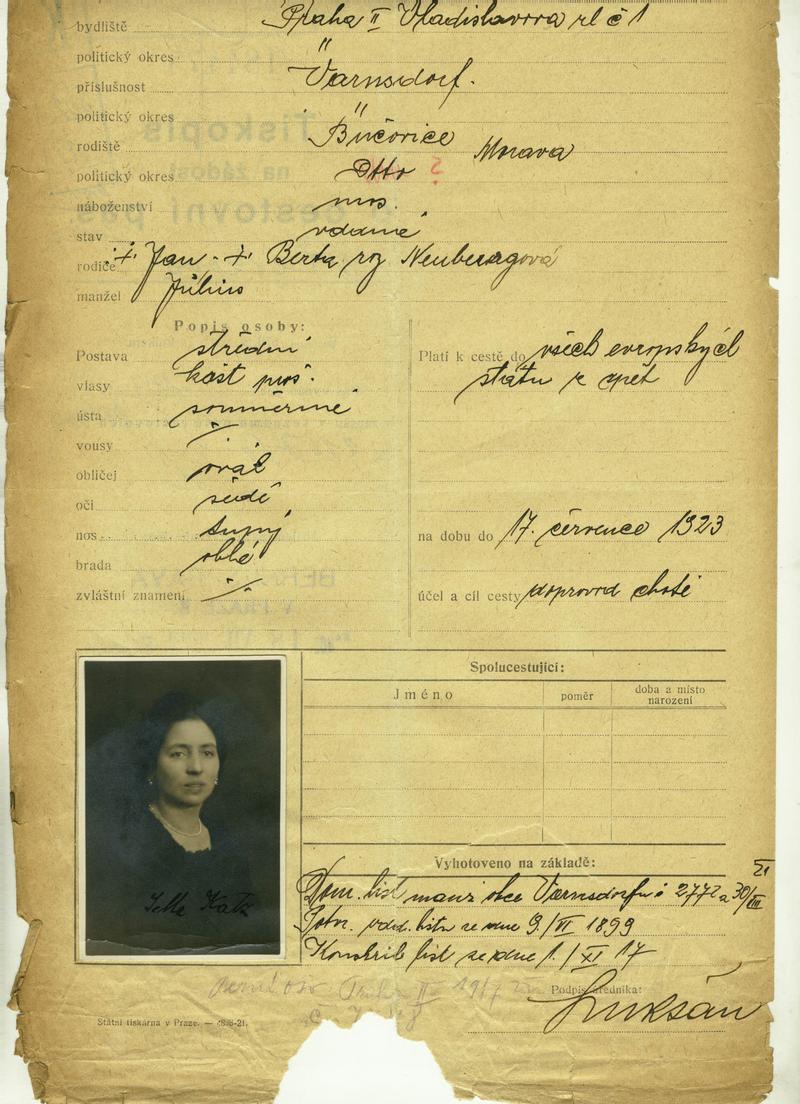 bydliště Praha II Vladislavova ul č 1
politický okres "
příslušnost Varnsdorf.
politický okres "
rodiště Bučovice Morava
politický okres Dtto
náboženství mos.
stav vdaná
rodiče Jan - Berta roz Neubergová
manžel Julius
Popis osoby:
Postava střední
vlasy kašt proš.
ústa souměrné
vousy ·/·
obličej ovál
oči šedé
nos tupý
brada oblé
zvláštní znamení ·/·
Platí k cestě do všech evropských
států a zpět
na dobu do 17. července 1923
účel a cíl cesty doprovod chotě
Spolucestující:
Jméno poměr doba a místo narození
Vyhotoveno na základě:
Dom. list manž obce Varnsdorfu č 2772 a 30/III 21
Potvr. odd. listu ze dne 9./VI 1899
Konskrib list ze dne 1./XI 17
Katz
Podpis úředníka:
Luksán
Státní tiskárna v Praze. — 4818-21.